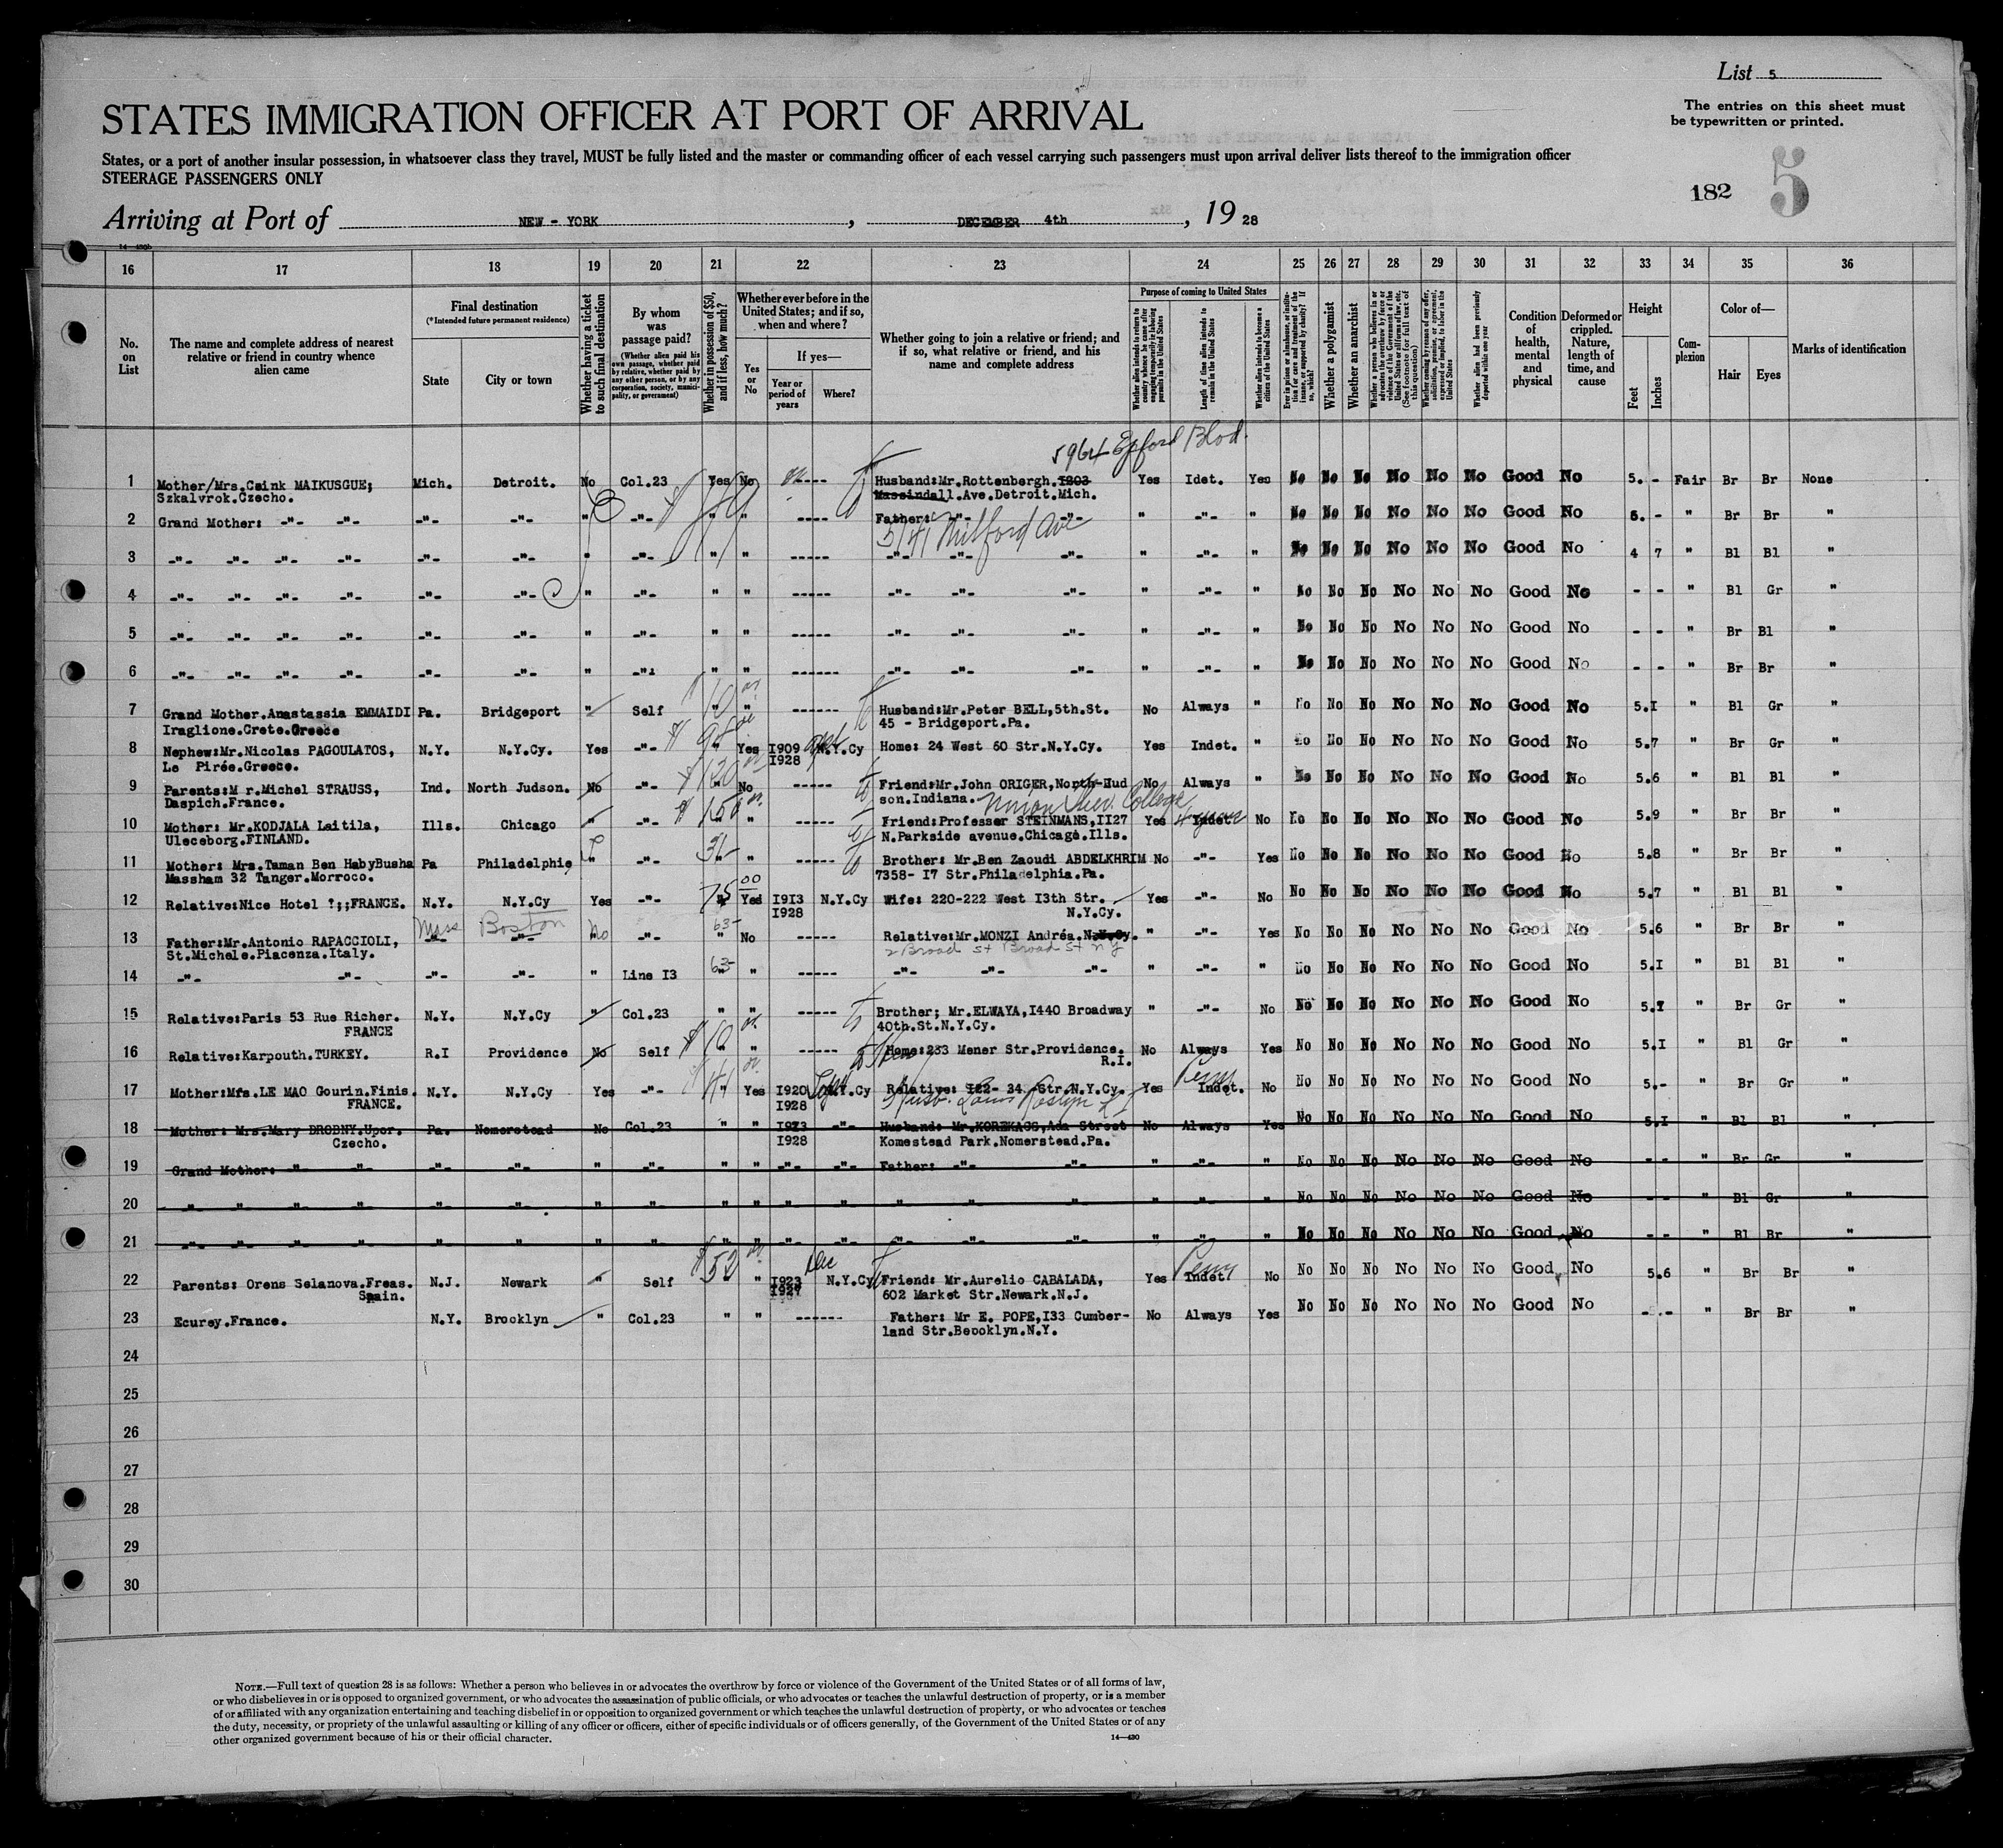 List 5
The entries on this sheet must
be typewritten or printed.
STATES IMMIGRATION OFFICER AT PORT OF ARRIVAL
States, or a port of another insular possession, in whatsoever class they travel, MUST be fully listed and the master or commanding officer of each vessel carrying such passengers must upon arrival deliver lists thereof to the immigration officer
STEERAGE PASSENGERS ONLY
182 5
Arriving at Port of NEW - YORK , DECEMBER 4th , 19 28
16 17 18 19 20 21 22 23 24 25 26 27 28 29 30 31 32 33 34 35 36
No. on List
The name and complete address of nearest relative or friend in country whence alien came
Final destination
(*Intended future permanent residence)
State
City or town
Whether having a ticket to such final destination
By whom was passage paid?
(Whether alien paid his own passage, whether paid by relative, whether paid by any other person, or by any corporation, society, municipality, or government)
Whether in possession of $50, and if less, how much?
Whether ever before in the United States; and if so, when and where?
Yes or No
If yes—
Year or period of years
Where?
Whether going to join a relative or friend; and if so, what relative or friend, and his name and complete address
Purpose of coming to United States
Length of time alien intends to remain in the United States
Whether alien intends to become a citizen of the United States
Whether a polygamist
Whether an anarchist
Whether alien had been previously deported within one year
Condition of health, mental and physical
Deformed or crippled. Nature, length of time, and cause
Height
Feet
Inches
Complexion
Color of—
Hair
Eyes
Marks of identification
5964 Blvd.
1 Mother/Mrs.Caink MAIKUSGUE; Mich. Detroit. No Col.23 Yes No ----- Husband:Mr.Rottenbergh.1203 Yes Idet. Yes No No No No No No Good No 5. - Fair Br Br None
Szkalvrok.Czecho. Massindall.Ave.Detroit.Mich.
2 Grand Mother: -"- -"- -"- -"- " -"- " " ----- Father: -"- -"- " -"- " No No No No No No Good No 5. - " Br Br "
5141 Milford Ave
3 -"- -"- -"- -"- -"- -"- " -"- " " ----- -"- -"- -"- " -"- " No No No No No No Good No 4 7 " Bl Bl "
4 -"- -"- -"- -"- -"- -"- " -"- " " ----- -"- -"- -"- " -"- " No No No No No No Good No - - " Bl Gr "
5 -"- -"- -"- -"- -"- -"- " -"- " " ----- -"- -"- -"- " -"- " No No No No No No Good No - - " Br Bl "
6 -"- -"- -"- -"- -"- -"- " -"- " " ------ -"- -"- -"- " -"- " No No No No No No Good No - - " Br Br "
7 Grand Mother.Anastassia EMMAIDI Pa. Bridgeport " Self " " ------ Husband:Mr.Peter BELL,5th.St. No Always " No No No No No No Good No 5.I " Bl Gr "
Iraglione.Crete.Greece 45 - Bridgeport.Pa.
8 Nephew:Mr.Nicolas PAGOULATOS, N.Y. N.Y.Cy. Yes -"- " Yes I909 N.Y.Cy Home: 24 West 60 Str.N.Y.Cy. Yes Indet. " No No No No No No Good No 5.7 " Br Gr "
Le Pirée.Greece. I928
9 Parents:M r.Michel STRAUSS, Ind. North Judson. No -"- " No ----- Friend:Mr.John ORIGER,North-Hud No Always " No No No No No No Good No 5.6 " Bl Bl "
Daspich.France. son.Indiana.
Union College
10 Mother: Mr.KODJALA Laitila, Ills. Chicago " -"- $ 150 " ----- Friend:Professer STEINMANS,II27 Yes Indet. No No No No No No No Good No 5.9 " Br Br "
Uleceborg.FINLAND. N.Parkside avenue.Chicago.Ills.
11 Mother: Mrs.Taman Ben HabyBusha Pa Philadelphie " -"- " " ----- Brother: Mr.Ben Zaoudi ABDELKHRIM No -"- Yes No No No No No No Good No 5.8 " Br Br "
Massham 32 Tanger.Morroco. 7358- I7 Str.Philadelphia.Pa.
12 Relative:Nice Hotel ?;;FRANCE. N.Y. N.Y.Cy Yes -"- 75 00 Yes I9I3 N.Y.Cy Wife: 220-222 West I3th Str. Yes -"- No No No No No No No Good No 5.7 " Bl Bl "
I928 N.Y.Cy.
Mass Boston No 63-
13 Father:Mr.Antonio RAPACCIOLI, -"- -"- " -"- " No ----- Relative:Mr.MONZI Andréa.N.Y.Cy. " -"- Yes No No No No No No Good No 5.6 " Br Br "
St.Michele.Piacenza.Italy. 2 Broad St Broad St N Y
14 -"- -"- -"- -"- " Line I3 63- " ----- -"- -"- -"- " -"- " No No No No No No Good No 5.I " Bl Bl "
15 Relative:Paris 53 Rue Richer. N.Y. N.Y.Cy " Col.23 " " ----- Brother; Mr.ELWAYA,I440 Broadway " -"- No No No No No No No Good No 5.I " Br Gr "
FRANCE 40th.St.N.Y.Cy.
16 Relative:Karpouth.TURKEY. R.I Providence No Self $10 " " ----- Home:233 Mener Str.Providence. No Always Yes No No No No No No Good No 5.I " Bl Gr "
R.I.
17 Mother:Mfs.LE MAO Gourin.Finis. N.Y. N.Y.Cy Yes -"- " Yes I920 N.Y.Cy Relative: I22- 34 Str.N.Y.Cy. Yes Indet. No No No No No No No Good No 5.- " Br Gr "
FRANCE. I928 Husb. Louis Roslyn L I
18 Mother: Mrs.Mary DROBNY.Upor. Pa. Nomerstead No Col.23 " " I923 -"- Husband: Mr.KOREKACS,Ada Street No Always Yes No No No No No No Good No 5.I " Bl Bl "
Czecho. I928 Komestead Park.Nomerstead.Pa.
19 Grand Mother: " -"- -"- -"- " -"- " " -"- -"- Father: -"- -"- " -"- " No No No No No No Good No - - " Br Gr "
20 " " " " " " " " " " " " " " " " " " No No No No No No Good No - - " Bl Gr "
21 " " " " " " " " " " " " " " " " " " No No No No No No Good No - - " Bl Br "
22 Parents: Orens Selanova.Freas. N.J. Newark " Self $52 " I923 Dec N.Y.Cy Friend: Mr.Aurelio CABALADA, Yes Indet. No No No No No No No Good No 5.6 " Br Br "
Spain. I927 602 Market Str.Newark.N.J.
23 Ecurey.France. N.Y. Brooklyn " Col.23 " " ------ Father: Mr E. POPE,I33 Cumber- No Always Yes No No No No No No Good No -.- " Br Br "
land Str.Beooklyn.N.Y.
24
25
26
27
28
29
30
NOTE.—Full text of question 28 is as follows: Whether a person who believes in or advocates the overthrow by force or violence of the Government of the United States or of all forms of law,
or who disbelieves in or is opposed to organized government, or who advocates the assassination of public officials, or who advocates or teaches the unlawful destruction of property, or is a member
of or affiliated with any organization entertaining and teaching disbelief in or opposition to organized government or which teaches the unlawful destruction of property, or who advocates or teaches
the duty, necessity, or propriety of the unlawful assaulting or killing of any officer or officers, either of specific individuals or of officers generally, of the Government of the United States or of any
other organized government because of his or their official character.
14—430